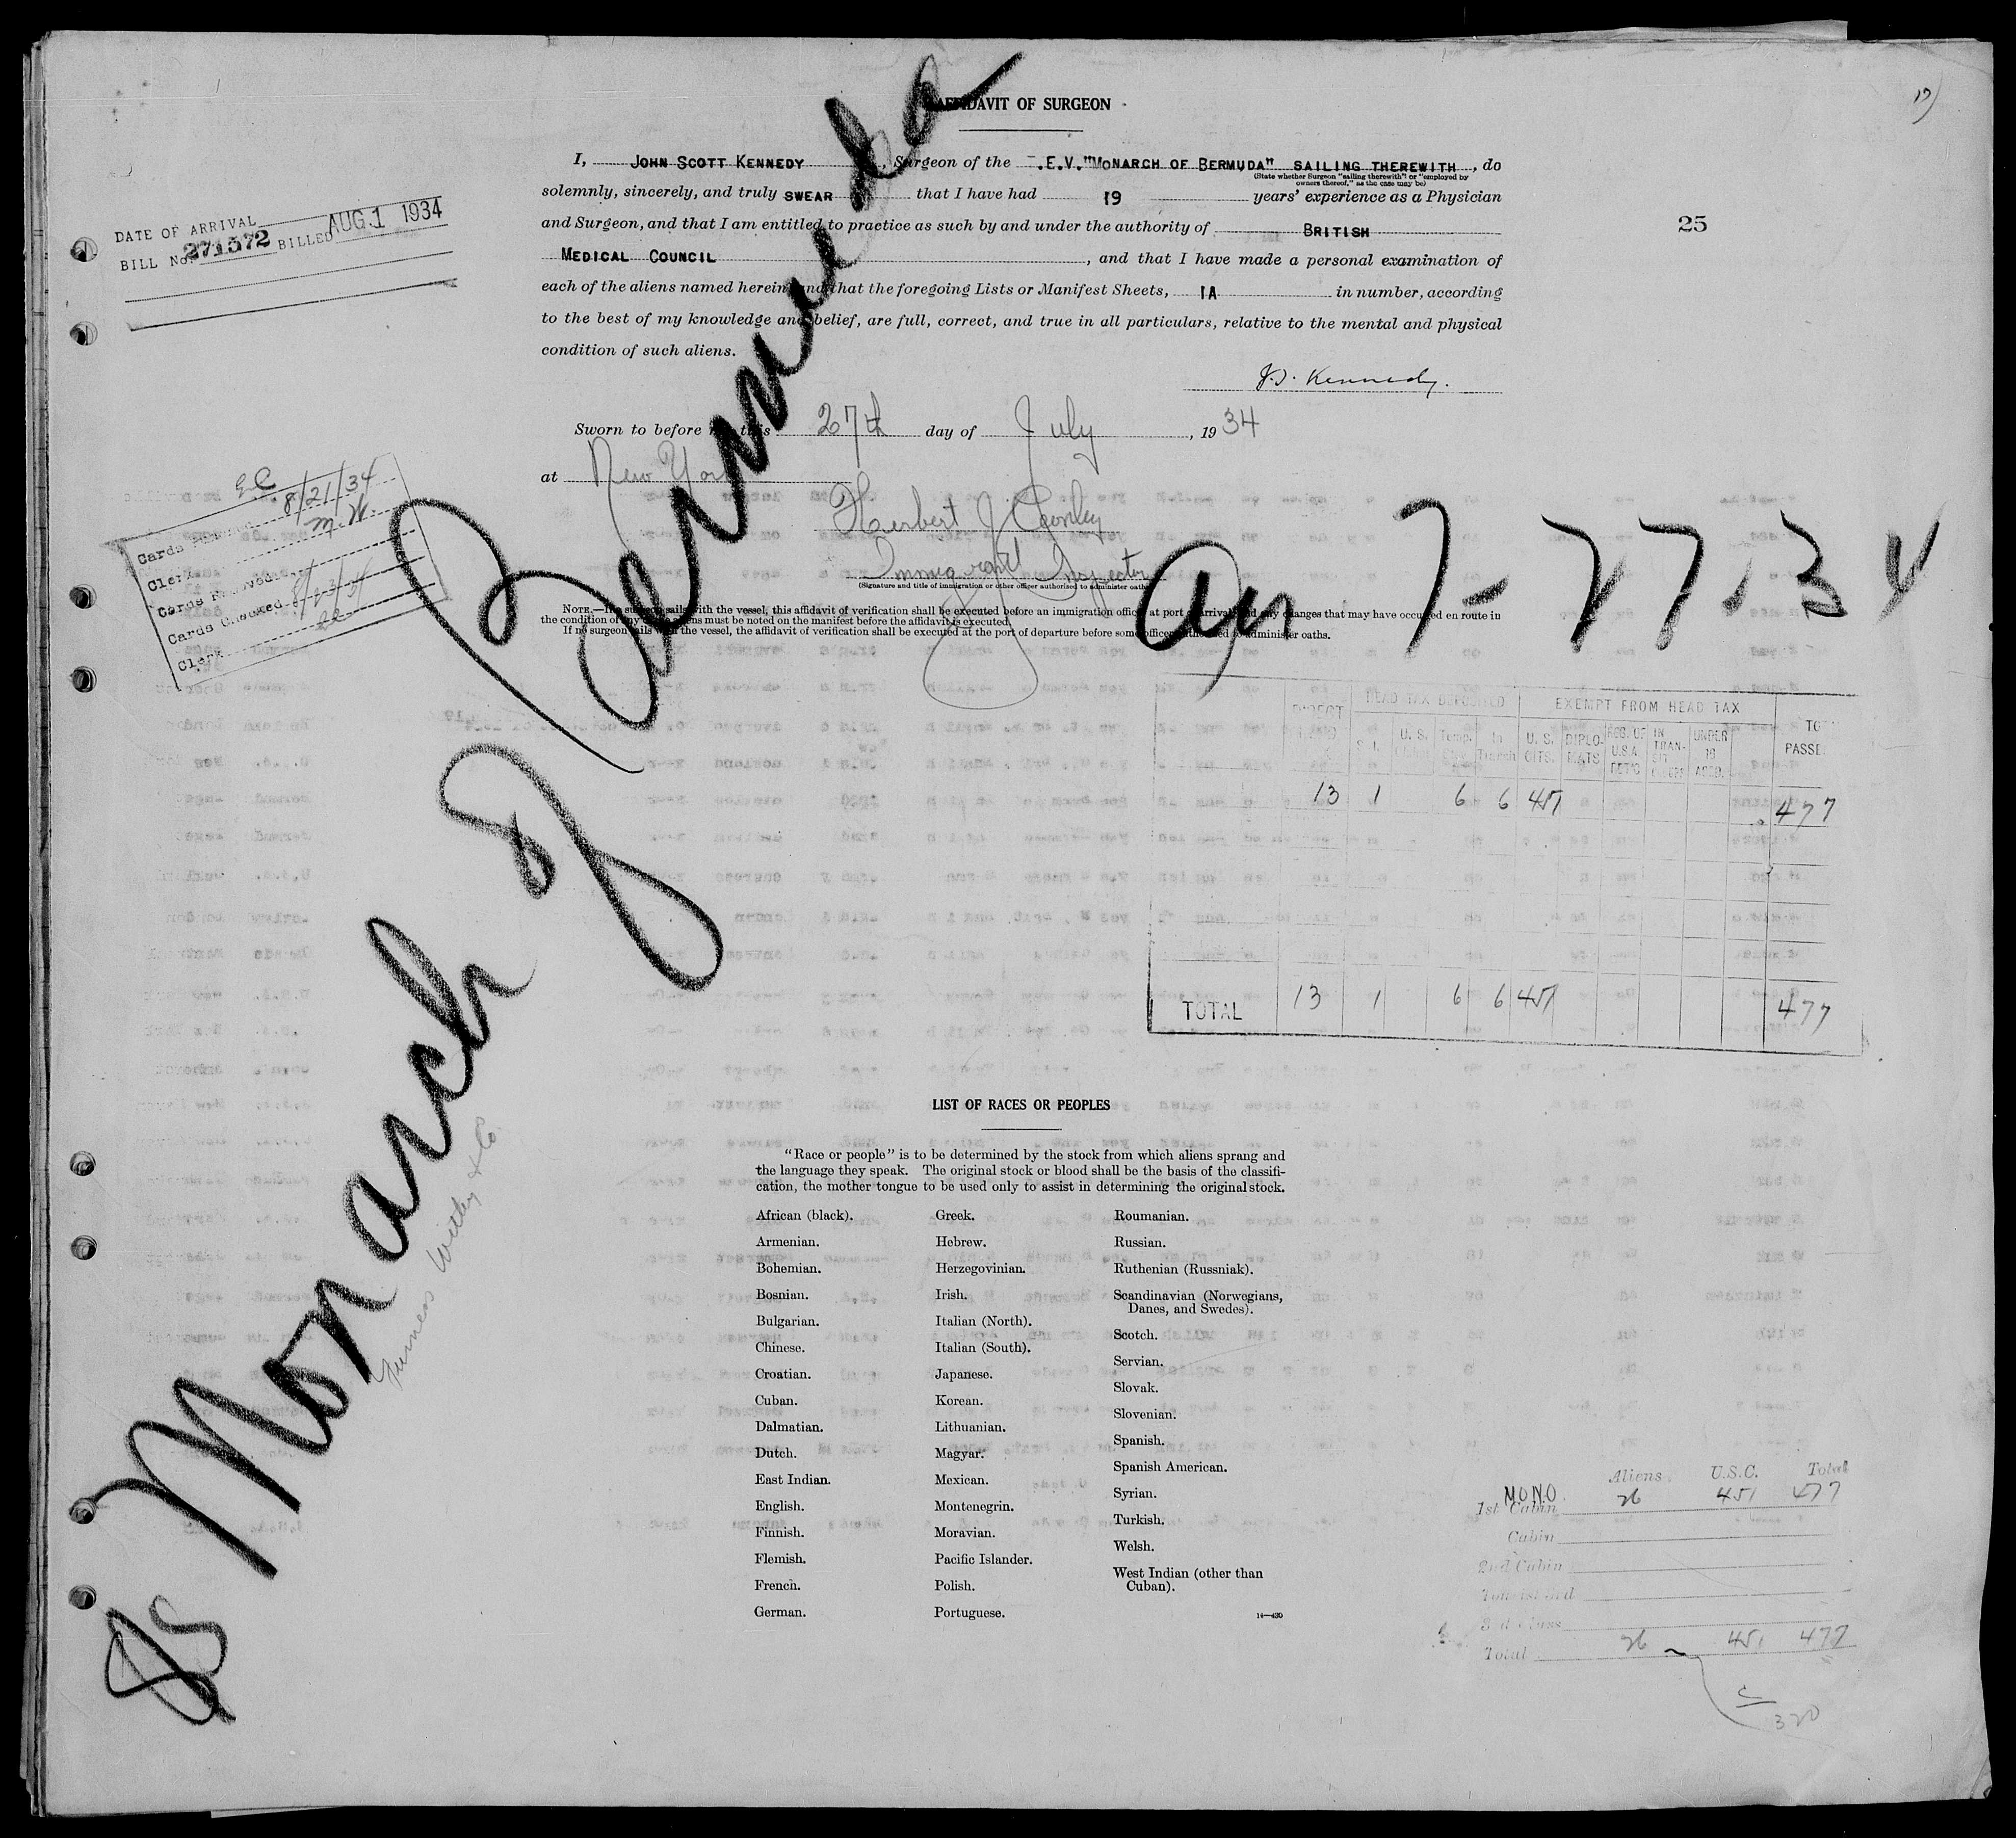 AFFIDAVIT OF SURGEON
17
I, JOHN SCOTT KENNEDY, Surgeon of the .E.V."MONARCH OF BERMUDA" SAILING THEREWITH, do
(State whether Surgeon "sailing therewith" or "employed by
owners thereof," as the case may be)
solemnly, sincerely, and truly SWEAR that I have had 19 years' experience as a Physician
and Surgeon, and that I am entitled to practice as such by and under the authority of BRITISH
MEDICAL COUNCIL, and that I have made a personal examination of
each of the aliens named herein and that the foregoing Lists or Manifest Sheets, 1A in number, according
to the best of my knowledge and belief, are full, correct, and true in all particulars, relative to the mental and physical
condition of such aliens.
J.S. Kennedy.
25
DATE OF ARRIVAL
BILL No. 271572 BILLED AUG. 1 1934
Sworn to before me this 27th day of July, 1934
at New York
Herbert J
Immigrant Inspector
(Signature and title of immigration or other officer authorized to administer oaths)
8/21/34
Clerk M.W.
Cards Removed
Cards Checked 8/23/34
Clerk
NOTE.—If a surgeon sails with the vessel, this affidavit of verification shall be executed before an immigration officer at port of arrival and any changes that may have occurred en route in
the condition of any aliens must be noted on the manifest before the affidavit is executed.
If no surgeon sails with the vessel, the affidavit of verification shall be executed at the port of departure before some officer authorized to administer oaths.
SS Monarch of Bermuda
Furness Withy & Co.
Arr 7-27-34
DIRECT HEAD TAX DEPOSITED EXEMPT FROM HEAD TAX
S.I. U.S. Temp. In Transit U.S. CITS. DIPLO-MATS RES. OF U.S.A. RET'G IN TRAN-SIT UNDER 16 ACCD. PASSE
13 1 6 6 451 477
TOTAL 13 1 6 6 451 477
LIST OF RACES OR PEOPLES
"Race or people" is to be determined by the stock from which aliens sprang and
the language they speak. The original stock or blood shall be the basis of the classifi-
cation, the mother tongue to be used only to assist in determining the original stock.
African (black).
Armenian.
Bohemian.
Bosnian.
Bulgarian.
Chinese.
Croatian.
Cuban.
Dalmatian.
Dutch.
East Indian.
English.
Finnish.
Flemish.
French.
German.
Greek.
Hebrew.
Herzegovinian.
Irish.
Italian (North).
Italian (South).
Japanese.
Korean.
Lithuanian.
Magyar.
Mexican.
Montenegrin.
Moravian.
Pacific Islander.
Polish.
Portuguese.
Roumanian.
Russian.
Ruthenian (Russniak).
Scandinavian (Norwegians,
Danes, and Swedes).
Scotch.
Servian.
Slovak.
Slovenian.
Spanish.
Spanish American.
Syrian.
Turkish.
Welsh.
West Indian (other than
Cuban).
14—430
Aliens U.S.C. Total
MONO.
1st Cabin 26 451 477
Cabin
2nd Cabin
Tourist 3rd
3rd class
Total 26 451 477
320